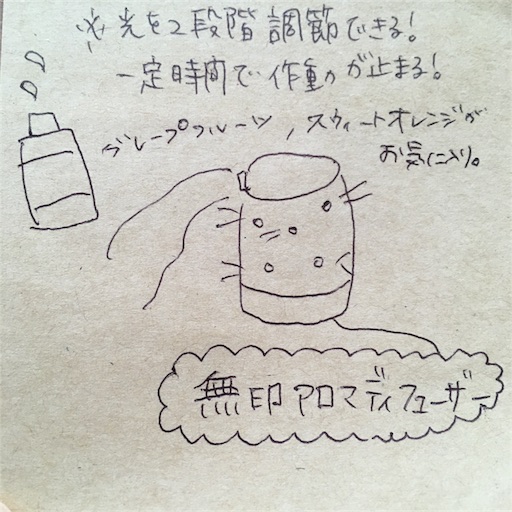 ※光を2段階調節できる!
一定時間で作動が止まる!
グレープフルーツ、スウィートオレンジが
お気に入り。
無印アロマディフューザー